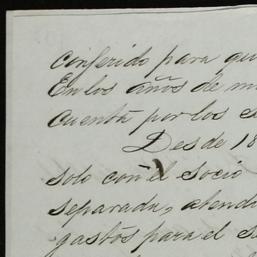 conferido para qu
En los años de m
cuenta por los 
Desde 18
solo con el socio
separada, atend
gastos para el s